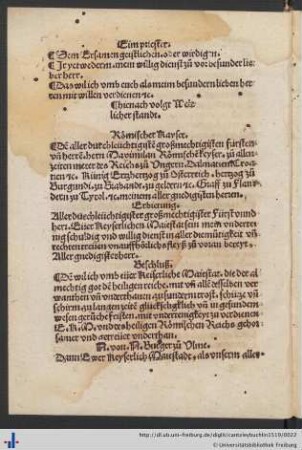 Eim priester.
Dem Ersamen geistlichen oder wirdigen.
Je yetwederm. mein willig dienst zů vor besunder lie
ber herr.
Das wil ich umb euch als mein besundern lieben her
ren mit willen verdienen ꝛc.
Hienach volgt Welt
licher standt.
Römischer Kayser.
Dē aller durchleüchtigistē großmechtigisten fürsten
vñ herrē. hern Maximilian Römischē keyser, zů allen
zeiten merer des Reichs zů Ungern, Dalmatien Croa
tien ꝛc. Künig Ertzhertzog zů Österreich, hertzog zů
Burgundi, zů Brabandt, zů geldern ꝛc. Graff zů Flan
dern zů Tyrol. ꝛc. meinem aller gnedigisten herren.
Erbietung.
Aller durchleüchtigister großmechtigister Fürst vnnd
herr. Eüer Keyserlichen Maiestat sein mein vnderte
nig schuldig vnd willig dienst in aller diemütigkeit vñ
rechten trewen vnauffhörlichs fleyß zů voran bereyt.
Aller gnedigister herr.
Beschluß.
Dē wil ich vmb eüer Keiserliche Maiestat. die der al
mechtig got dē heiligen reiche. mit vñ all desselben ver
wanthen vñ vnderthanen, zu sundern trost, schutz vñ
schirm, zu langen zeitē glückseligklich vñ in gesundem
wesen gerüche fristen. mit vnderteniger zu verdienen
E. K. M. vnd des heiligen Römischen Reichs gehor
samer vnd getreüer vnderthan.
N. von. N. Burger zů Ulme.
Dann Ewer Keyserlich Maiestade, als vnserm aller
http://dl.ub.uni-freiburg.de/diglit/cantzleybuchlin1510/0022
Universitätsbibliothek Freiburg